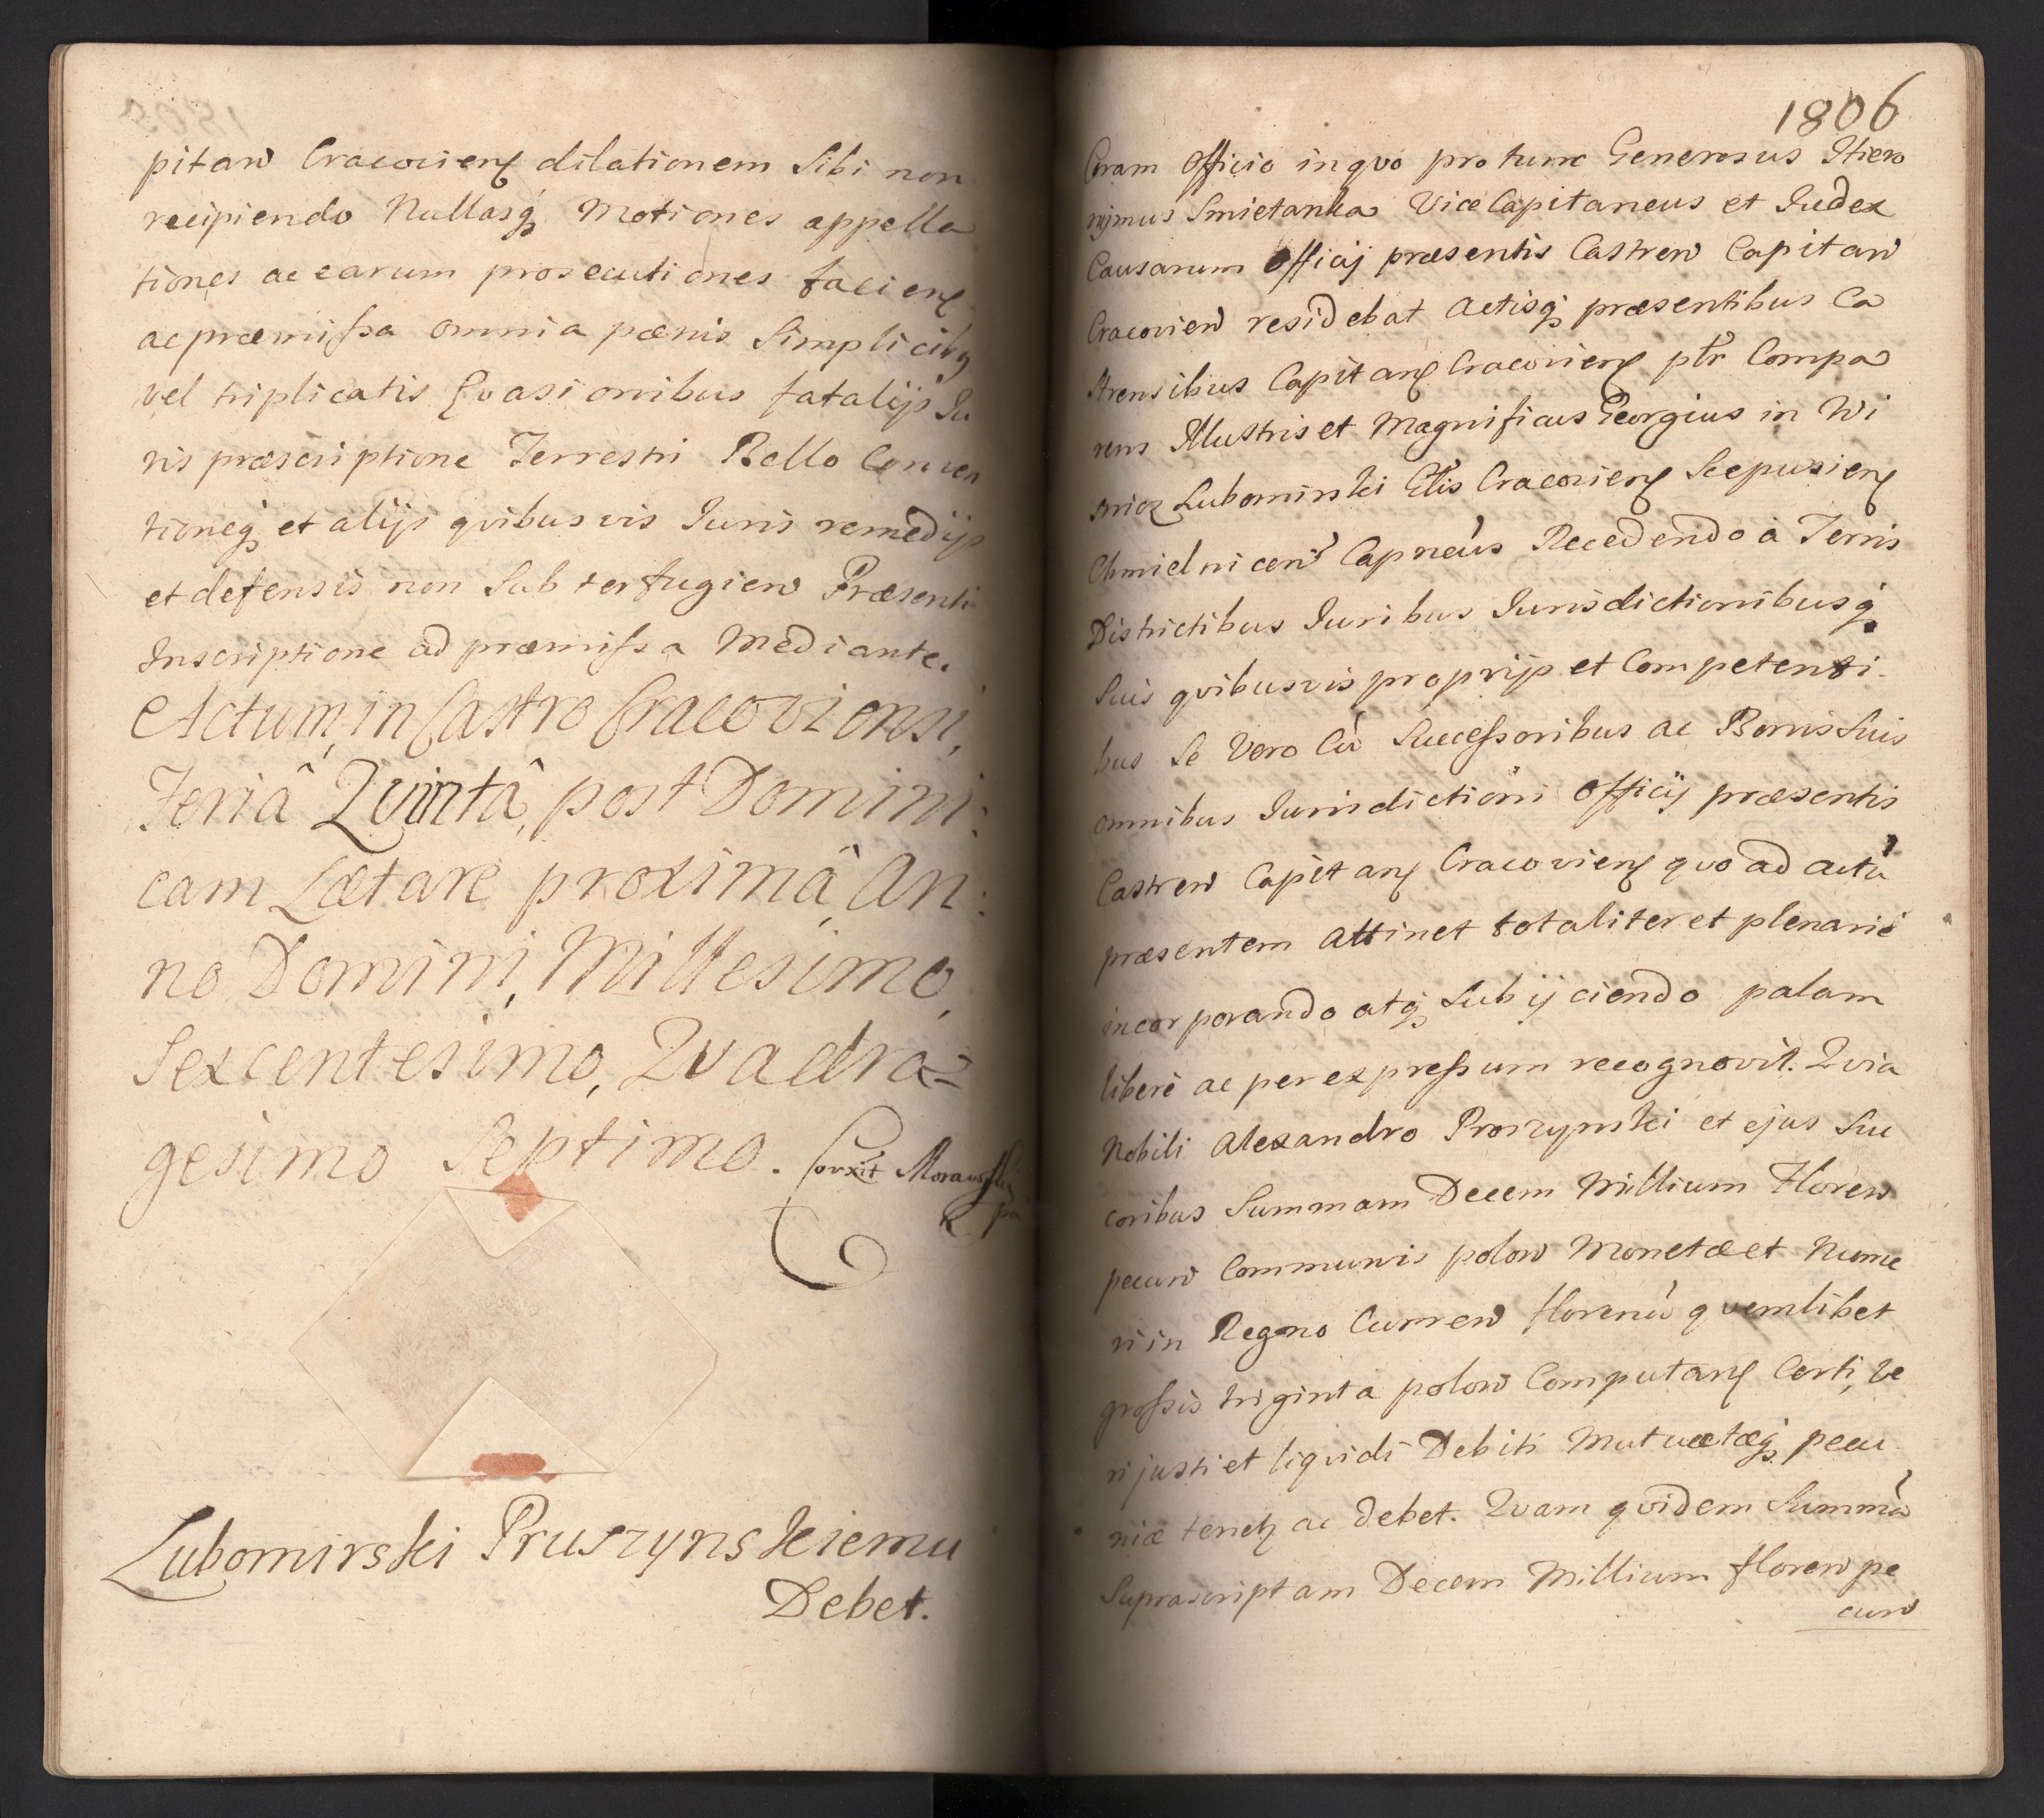 pitan Cracovien dilationem Sibi non
recipiendo Nullasq; Motiones appella
tiones ac earum prosecutiones facien
ac præmissa omnia pænis Simplicibq
vel triplicatis Evasionibus fatalijs Iu
ris præscriptione Terrestri Bello Conven
tioneq; et alijs qvibusvis Iuris remedijs
et defensis non Subterfugien Præsenti
Inscriptione ad præmissa Mediante.
Actum, in Castro Cracoviensi,
Feriâ Qvintâ, post Domini:
cam Lætare proximâ, An:
no Domini, Millesimo,
Sexcentesimo, Qvadra=
gesimo Septimo. Correxit Morawski
Lubomirski Pruszynskiemu
Debet.
1806
Coram Officio in qvo pro tunc Generosus Hiero
nijmus Smietanka ViceCapitaneus et Iudex
Causarum Officij præsentis Castren Capitan
Cracovien residebat Actisq; præsentibus Ca
strensibus Capitan Cracovien ptr Compa
rens Illustris et Magnificus Georgius in Wi
snicz Lubomirski Gtis Cracovien Scepusien
Chmielnicen Capneus Recedendo à Terris
Districtibus Iuribus Iurisdictionibusq;
Suis qvibusvis proprijs et Competenti-
bus Se Vero Cū Successoribus ac Bonis Suis
omnibus Iurisdictioni Officij præsentis
Castren Capitan Cracovien qvo ad actū
præsentem Attinet totaliter et plenariè
incorporando atq; Subijciendo palam
liberè ac per expressum recognovit. Qvia
Nobili Alexandro Proszynski et ejus Suc
coribus Summam Decem Millium Floren
pecun Communis polon Monetæ et Nume
ri in Regno Curren florenū qvemlibet
grossis triginta polon Computan Certi, Ve
ri justi et liqvidi Debiti Mutuætæq; pecu
niæ tenetz ac Debet. Qvam qvidem Summā
Suprascriptam Decem Millium floren pe
cun